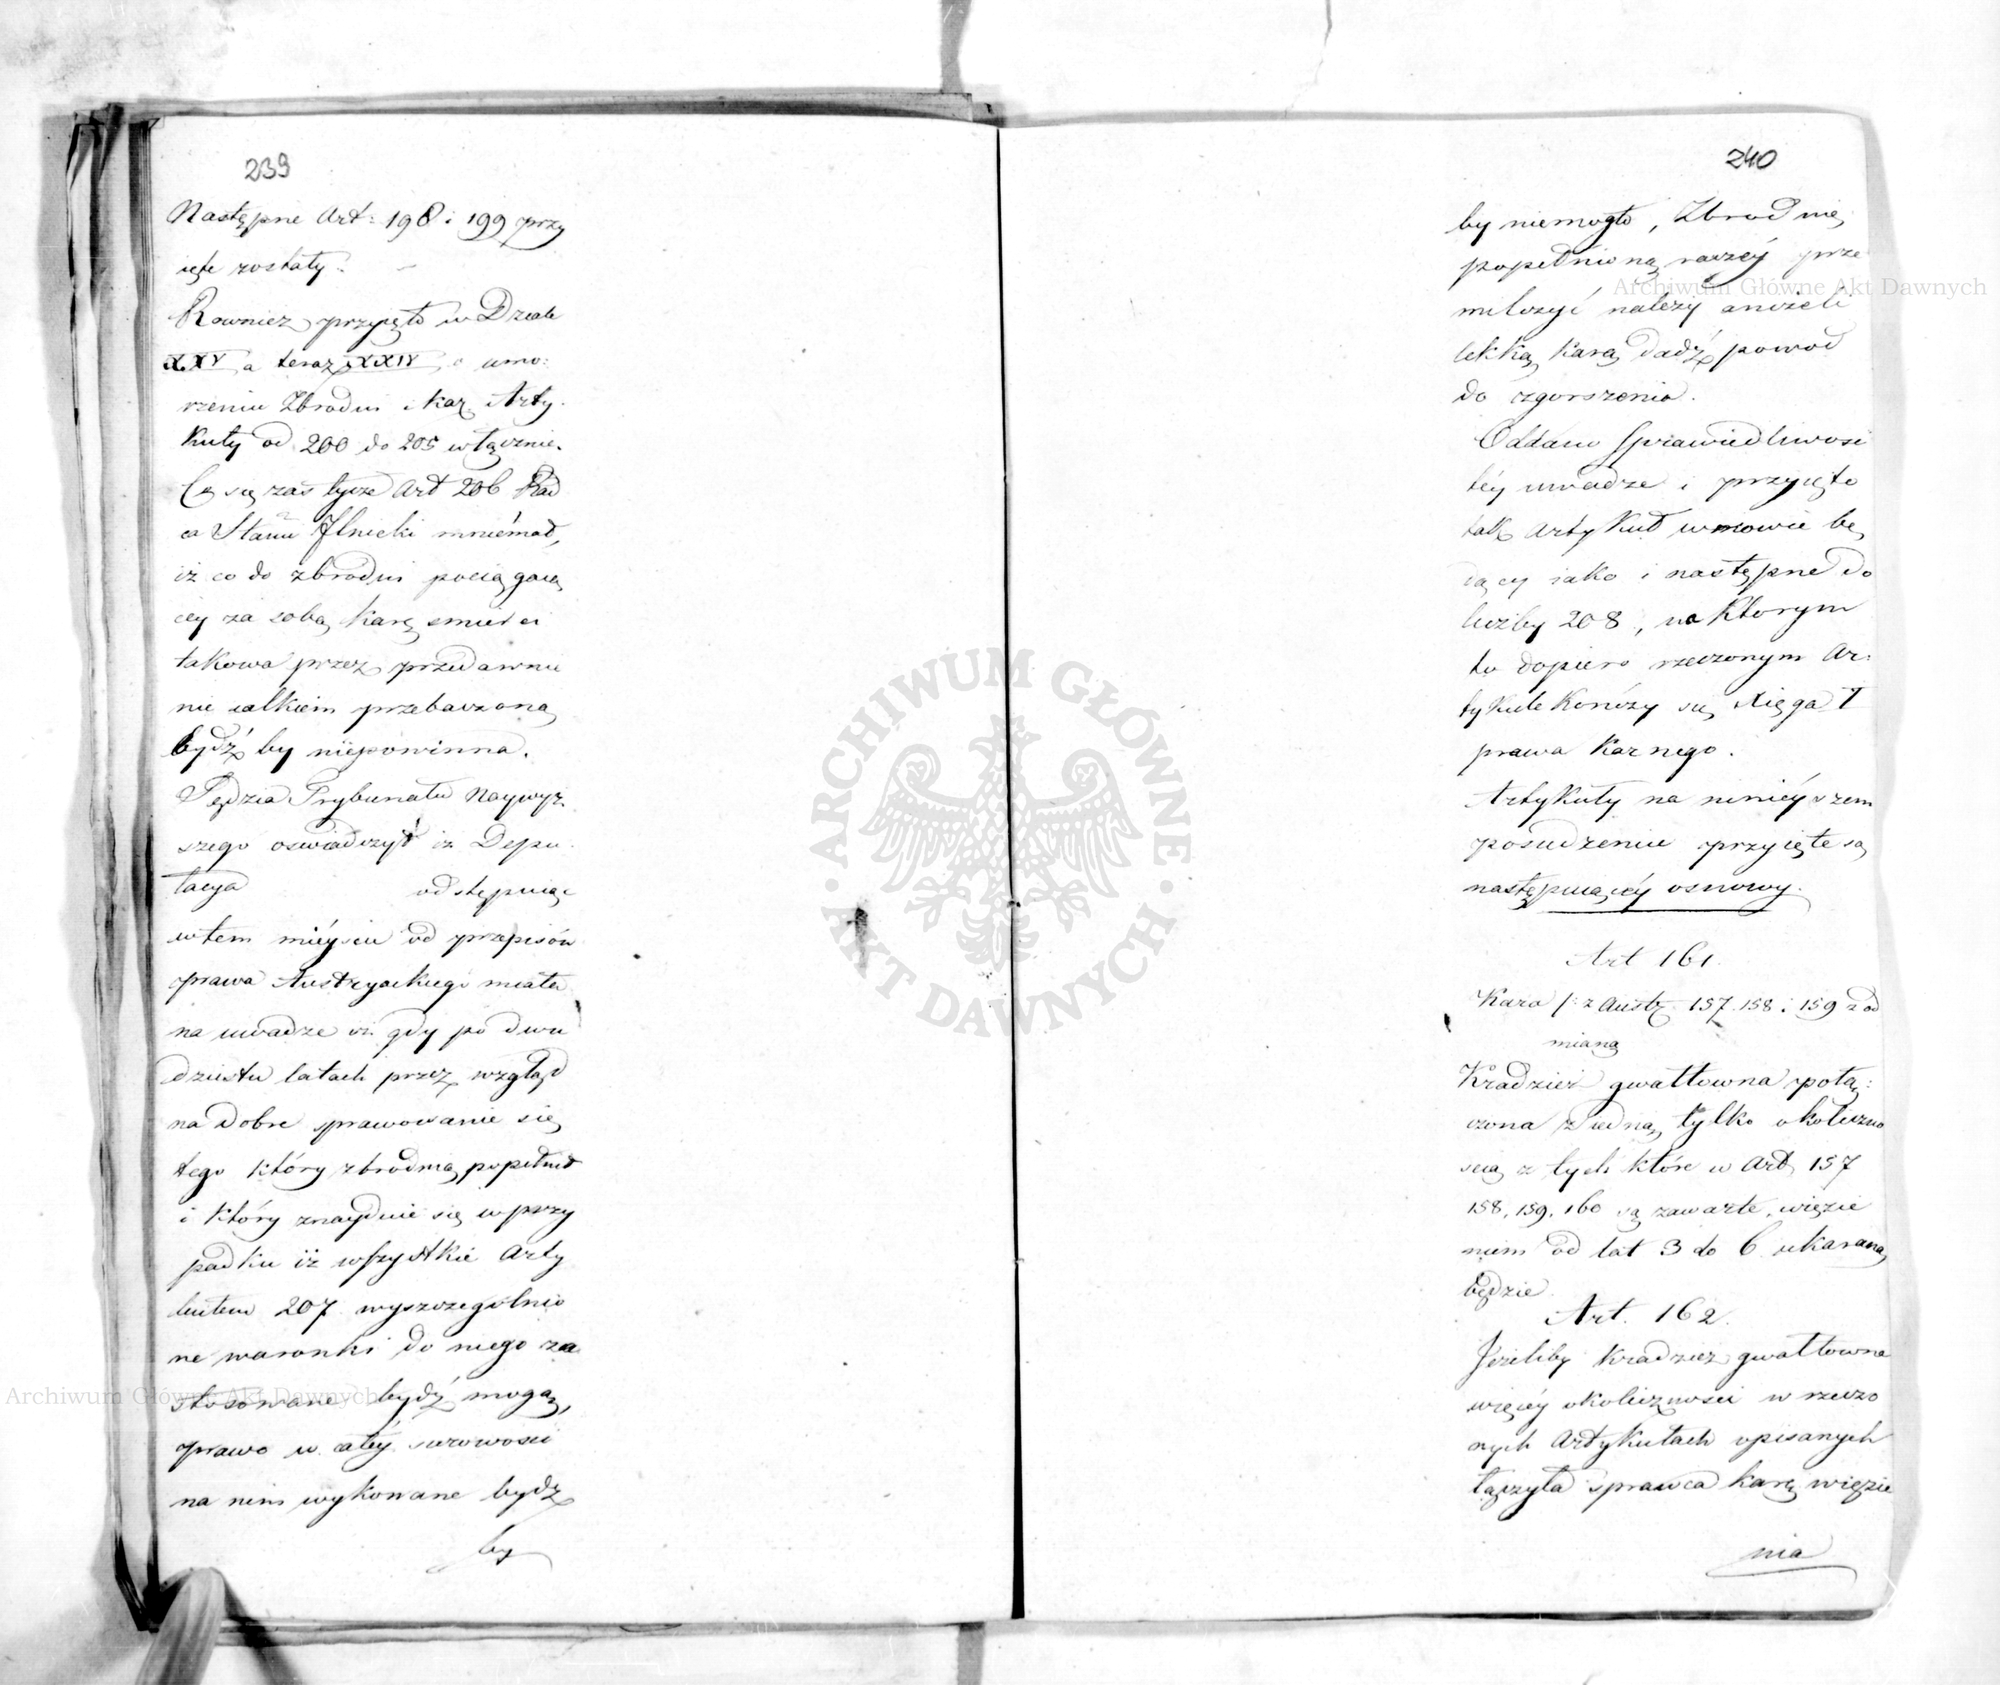 239
Następne Art: 198 i 199 przy
ięte zostały.
Rownież przyięto w Dziale
XXV a teraz XXIV o umo:
rzeniu Zbrodni i kar Arty.
kuły od 200 do 205 włącznie.
Co się zaś tycze Art 206 Rad
ca Stanu Ilnicki mniémał,
iż co do zbrodni pociągaią
cey za sobą karę smierci
takowa przez przedawnie
nie całkiem przebaczoną
bydź by niepowinna.
Sędzia Trybunału Naywyż
szego oswiadczył iż Depu
tacya odstępuiąc
w tem mieyscu od przepisów
prawa Austryackiego miała
na uwadze iż gdy po dwu
dziestu latach przez wzgląd
na dobre sprawowanie się
tego który zbrodnią popełnił
i który znayduie się w przy
padku iż wszystkie Arty
kułem 207 wyszczególnio
ne warunki do niego za
stosowane bydź mogą,
prawo w całey surowosci
na nim wykonane bydź
by
240
by niemogło, Zbrodnię
popełnioną raczéy prze
milczyć należy aniżeli
lekką karą dadź powod
do zgorszenia.
Oddano Sprawiedliwosć
téy uwadze i przyięto
tak Artykuł w mowie bę
dący iako i następne do
liczby 208, na ktorym
to dopiero rzeczonym Ar:
tykule kończy się xięga I
prawa Karnego.
Artykuły na ninieyszem
posiedzeniu przyięte są
następuiącéy osnowy.
Art 161.
Kara /: z Austr. 157. 158 i 159 z od
mianą
Kradzież gwałtowna połą:
czona z iedną tylko okoliczno
scią z tych które w Art 157
158, 159, 160 są zawarte, więzie
niem od lat 3 do 6 ukaraną
będzie.
Art. 162.
Jeżeliby kradzież gwałtowna
więcéy okolicznosci w rzeczo
nych Artykułach opisanych
łączyła sprawca karę więzie
nia
ARCHIWUM GŁÓWNE AKT DAWNYCH
Archiwum Główne Akt Dawnych
Archiwum Główne Akt Dawnych